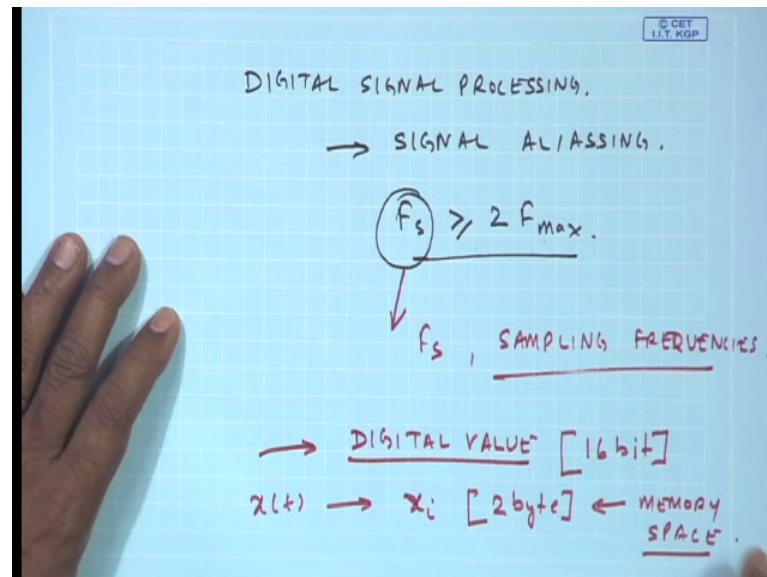 © CET
I.I.T. KGP
DIGITAL SIGNAL PROCESSING.
→ SIGNAL ALIASSING.
Fs ⩾ 2 Fmax.
fs , SAMPLING FREQUENCIES.
→ DIGITAL VALUE [16 bit]
x(t) → xi [2 byte] ← MEMORY
SPACE.